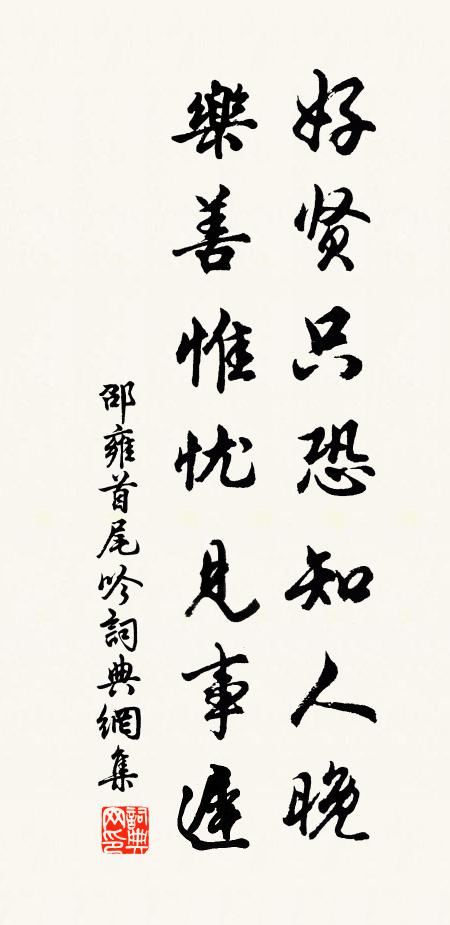 好贤只恐知人晚
樂善惟忧見事遲
邵雍首尾吟詞典網集
詞典
网印